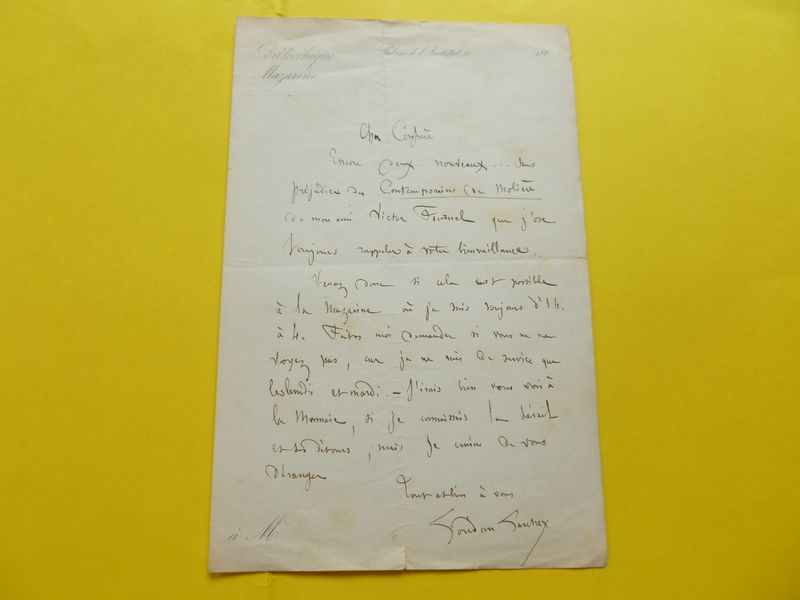 Bibliothèque Palais de l'Institut, le 186
Mazarine
Cher Confrère
Encore deux nouveaux... sans
préjudice des Contemporains de Molière
de mon ami Victor Fournel que j'ose
toujours rappeler à votre bienveillance.
Venez donc si cela est possible
à la Mazarine où je suis toujours d'1 h.
à 4. Faites moi demander si vous ne me
voyez pas, car je ne suis de service que
les lundi et mardi. — J'irais bien vous voir à
la Monnaie, si je connaissais le
et les détours, mais je crains de vous
déranger
Tout et bien à vous
à M